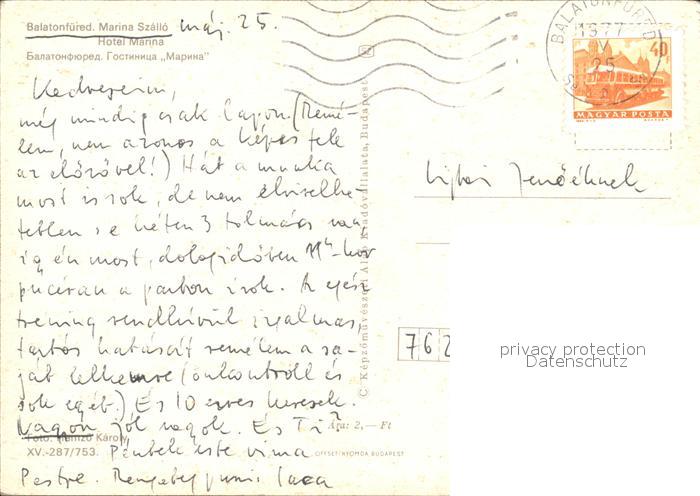 Balatonfüred. Marina Szálló máj. 25.
Hotel Marina
Балатонфюред. Гостиница „Марина"
Kedveseim,
még mindig csak lapon. (Remé-
lem, nem azonos a képes fele
az előzővel!) Hát a munka
most is sok, de nem elviselhe-
tetlen s e héten 3 tolmács van,
így én most, dologidőben
a parkon írok. Az egész
tréning rendkívül izgalmas,
tartós hatását remélem a sa-
ját lelkemre (önkontroll és
sok egyéb.) És 10 éves keresek.
Nagyon jól vagyok. És Ti?
Ára: 2,— Ft
Foto: Hemző Károly
XV.-287/753. Péntek este vissza
OFFSETNYOMDA BUDAPEST
Pestre.
C. Képzőművészeti Alap Kiadóvállalata, Budapest
BALATONFÜRED
1977
V
25
40
MAGYAR POSTA
Jenőéknek
762
privacy protection
Datenschutz